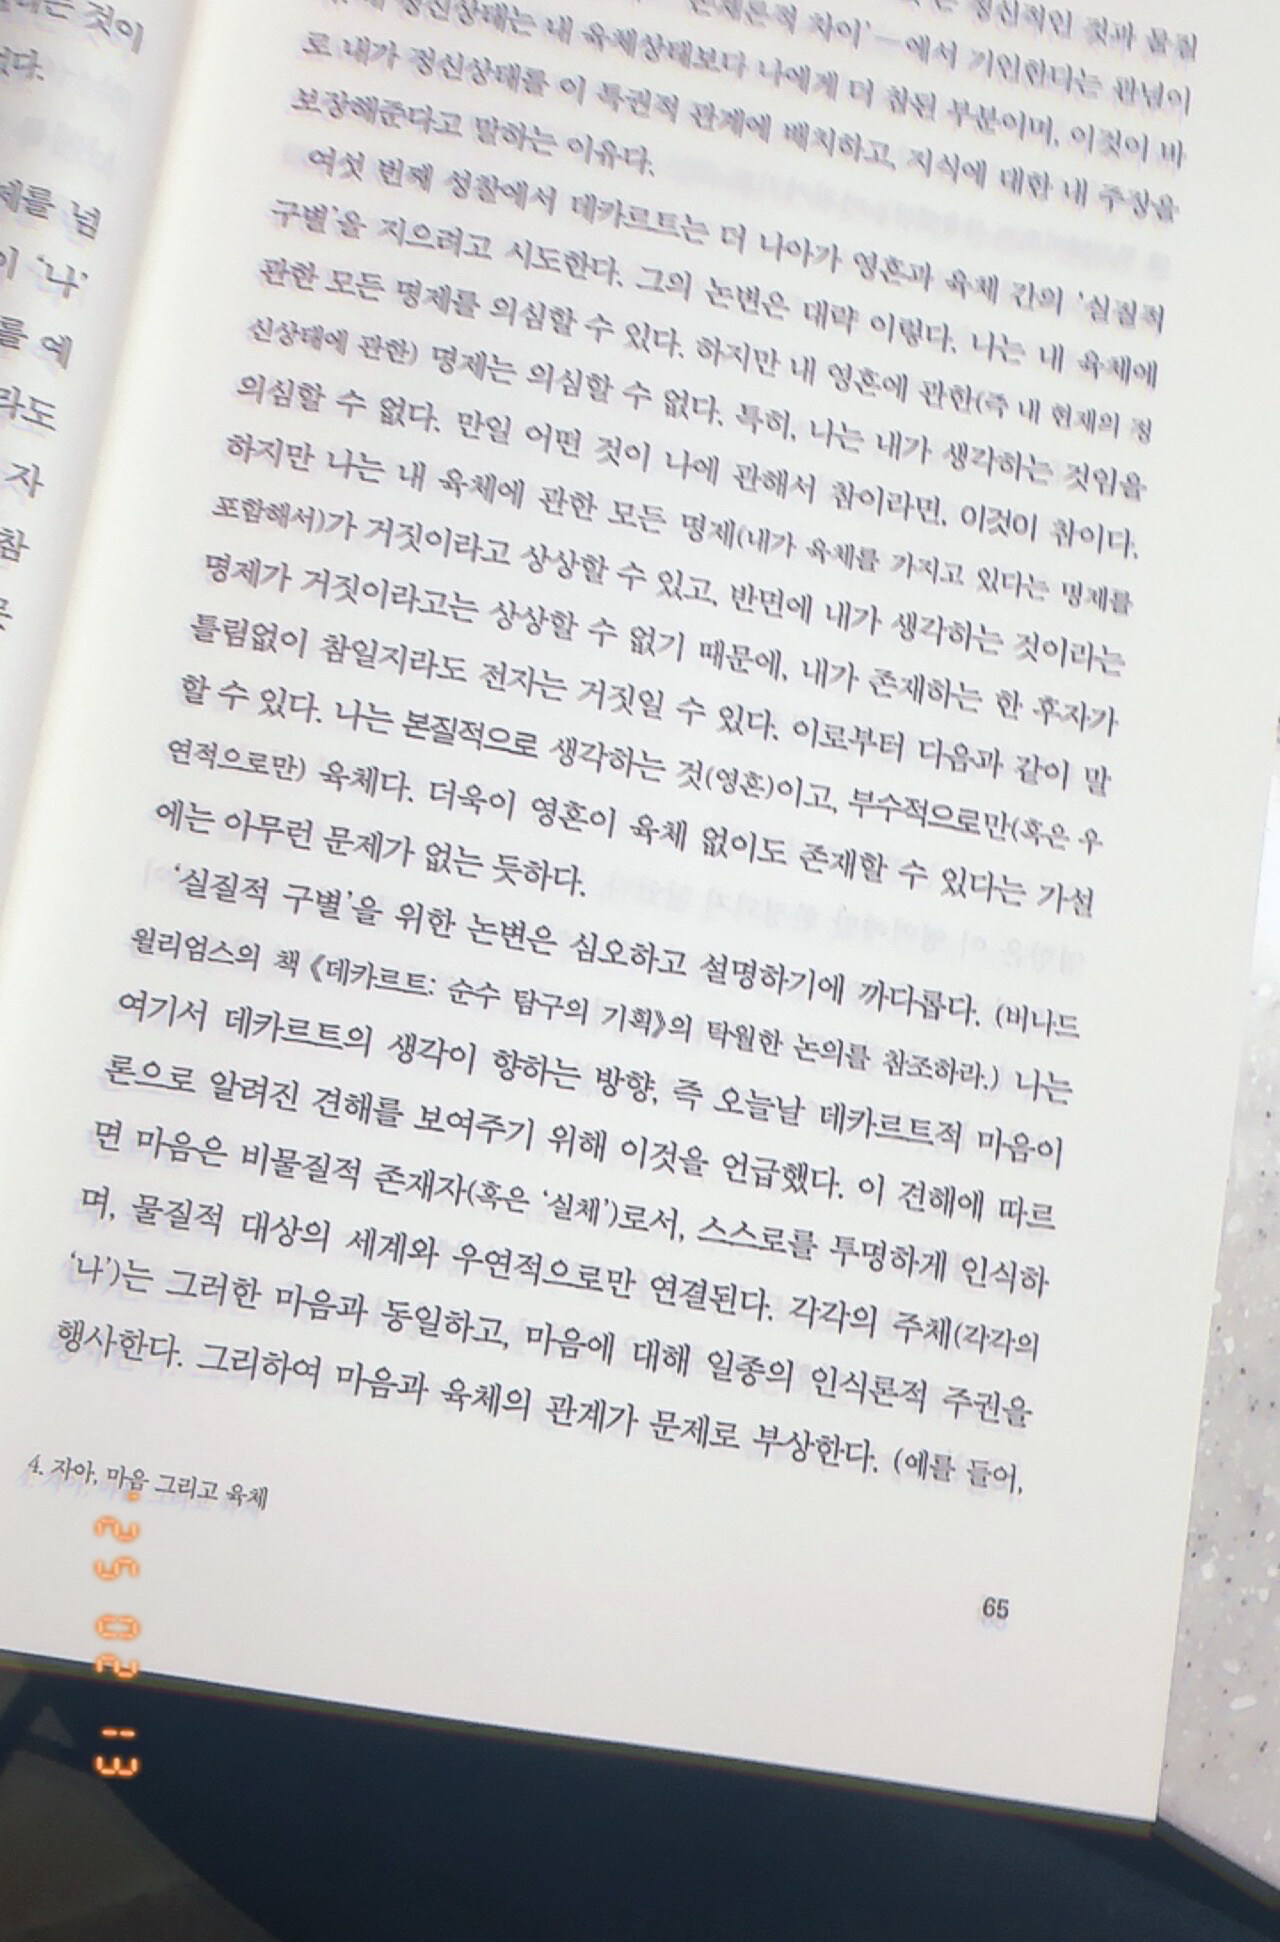 것이
없다.
제를 넘
이 '나'
를 예
라도
자
참
정신적인 것과 물질
차이'―에서 기인한다는 관념이
정신상태는 내 육체상태보다 나에게 더 참된 부분이며, 이것이 바
로 내가 정신상태를 이 특권적 관계에 배치하고, 지식에 대한 내 주장을
보장해준다고 말하는 이유다.
여섯 번째 성찰에서 데카르트는 더 나아가 영혼과 육체 간의 '실질적
구별'을 지으려고 시도한다. 그의 논변은 대략 이렇다. 나는 내 육체에
관한 모든 명제를 의심할 수 있다. 하지만 내 영혼에 관한(즉 내 현재의 정
신상태에 관한) 명제는 의심할 수 없다. 특히, 나는 내가 생각하는 것임을
의심할 수 없다. 만일 어떤 것이 나에 관해서 참이라면, 이것이 참이다.
하지만 나는 내 육체에 관한 모든 명제(내가 육체를 가지고 있다는 명제를
포함해서)가 거짓이라고 상상할 수 있고, 반면에 내가 생각하는 것이라는
명제가 거짓이라고는 상상할 수 없기 때문에, 내가 존재하는 한 후자가
틀림없이 참일지라도 전자는 거짓일 수 있다. 이로부터 다음과 같이 말
할 수 있다. 나는 본질적으로 생각하는 것(영혼)이고, 부수적으로만(혹은 우
연적으로만) 육체다. 더욱이 영혼이 육체 없이도 존재할 수 있다는 가설
에는 아무런 문제가 없는 듯하다.
'실질적 구별'을 위한 논변은 심오하고 설명하기에 까다롭다. (비나드
윌리엄스의 책 《데카르트: 순수 탐구의 기획》의 탁월한 논의를 참조하라.) 나는
여기서 데카르트의 생각이 향하는 방향, 즉 오늘날 데카르트적 마음이
론으로 알려진 견해를 보여주기 위해 이것을 언급했다. 이 견해에 따르
면 마음은 비물질적 존재자(혹은 '실체')로서, 스스로를 투명하게 인식하
며, 물질적 대상의 세계와 우연적으로만 연결된다. 각각의 주체(각각의
'나')는 그러한 마음과 동일하고, 마음에 대해 일종의 인식론적 주권을
행사한다. 그리하여 마음과 육체의 관계가 문제로 부상한다. (예를 들어,
4. 자아, 마음 그리고 육체
65
'25 02 13